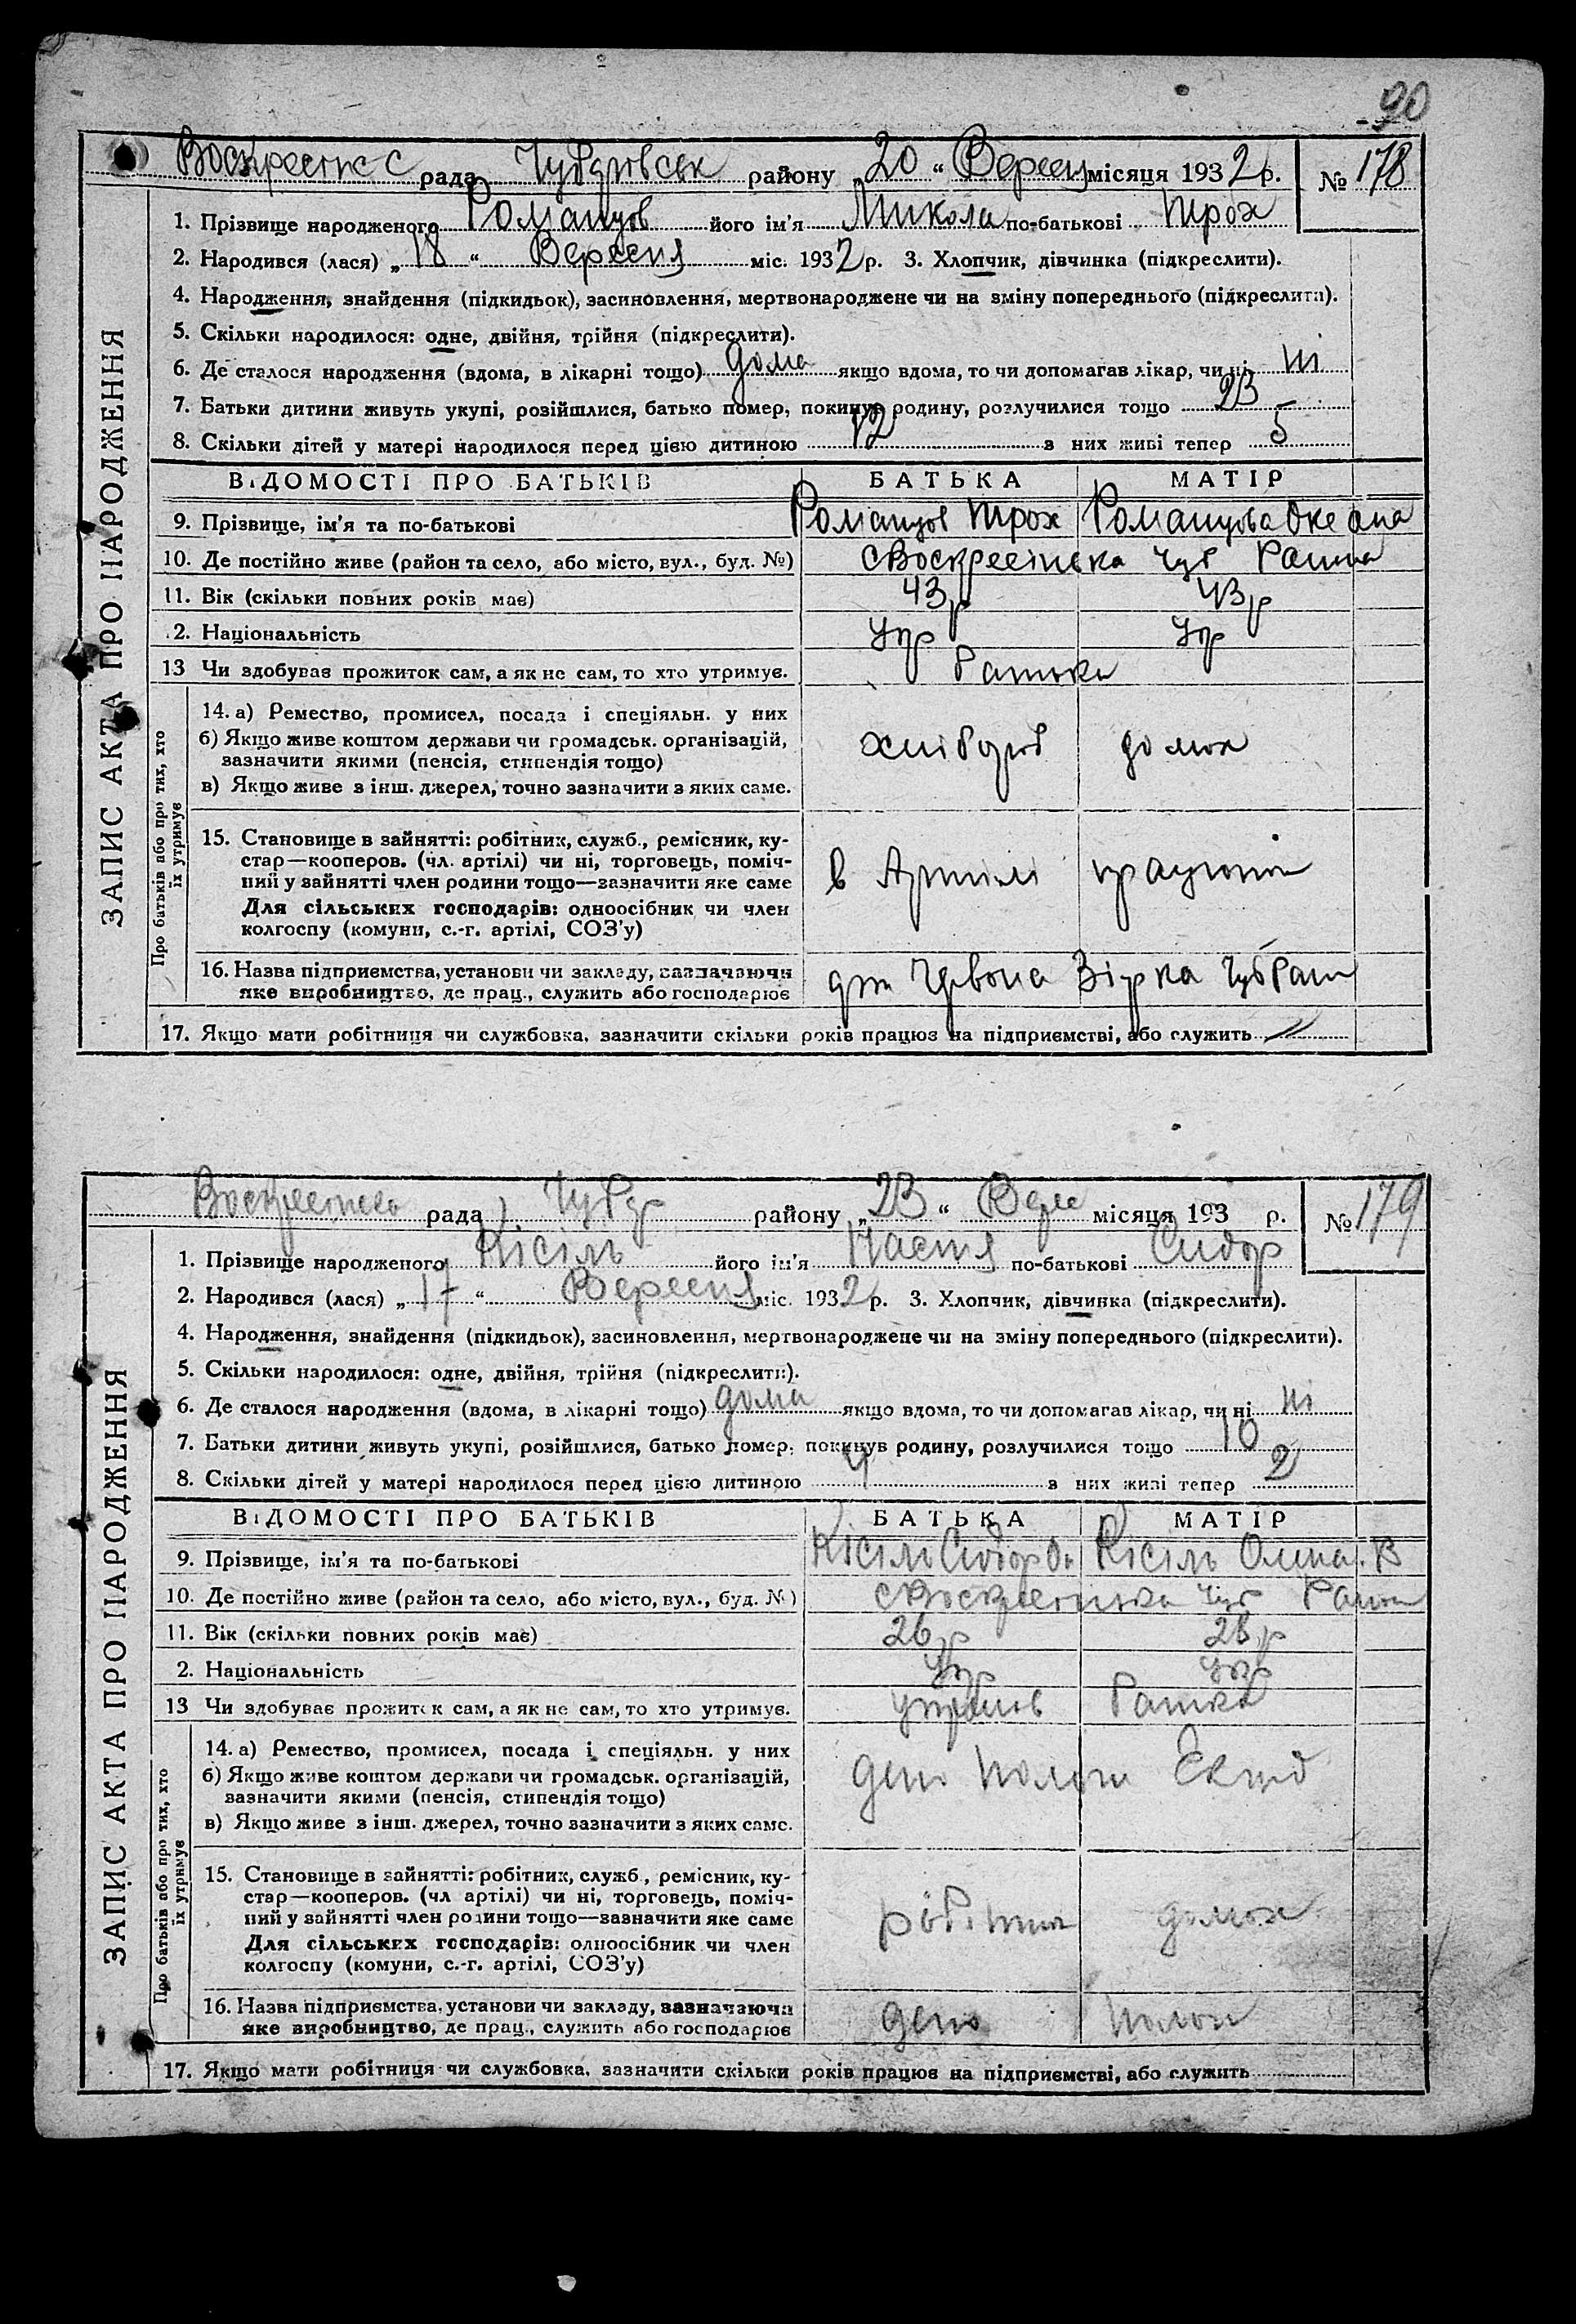 90
Воскресінс рада Чубарівськ району „20“ Вересн місяця 1932 р. № 178
1. Прізвище народженого Романцов його ім'я Микола по-батькові Трох
2. Народився (лася) „18“ Вересня міс. 1932 р. 3. Хлопчик, дівчинка (підкреслити).
4. Народження, знайдення (підкидьок), засиновлення, мертвонароджене чи на зміну попереднього (підкреслити).
5. Скільки народилося: одне, двійня, трійня (підкреслити).
6. Де сталося народження (вдома, в лікарні тощо) дома якщо вдома, то чи допомагав лікар, чи ні ні
7. Батьки дитини живуть укупі, розійшлися, батько помер, покинув родину, розлучилися тощо 23
8. Скільки дітей у матері народилося перед цією дитиною 12 з них живі тепер 5
ВІДОМОСТІ ПРО БАТЬКІВ БАТЬКА МАТІР
9. Прізвище, ім'я та по-батькові Романцов Трох Романцова
10. Де постійно живе (район та село, або місто, вул., буд. №) с Воскресінька Чуб Раина
11. Вік (скільки повних років має) 43 р 43 р
2. Національність Укр Укр
13 Чи здобуває прожиток сам, а як не сам, то хто утримує. Батько
ЗАПИС АКТА ПРО НАРОДЖЕННЯ
Про батьків або про тих, хто
їх утримує
14. а) Ремество, промисел, посада і спеціяльн. у них
б) Якщо живе коштом держави чи громадськ. організацій,
зазначити якими (пенсія, стипендія тощо)
в) Якщо живе з інш. джерел, точно зазначити з яких саме.
хлібороб домох
15. Становище в зайнятті: робітник, служб., ремісник, ку-
стар—кооперов. (чл. артілі) чи ні, торговець, поміч-
ний у зайнятті член родини тощо—зазначити яке саме
Для сільських господарів: одноосібник чи член
колгоспу (комуни, с.-г. артілі, СОЗ'у)
в Артілі
16. Назва підприємства, установи чи закладу, зазначаючи
яке виробництво, де прац., служить або господарює
Червона Зірка
17. Якщо мати робітниця чи службовка, зазначити скільки років працює на підприємстві, або служить
Воскресінсь рада Чубар району „23“ Вере місяця 193 р. № 179
1. Прізвище народженого Кісіль його ім'я Настя по-батькові Сидор
2. Народився (лася) „17“ Вересня міс. 1932 р. 3. Хлопчик, дівчинка (підкреслити).
4. Народження, знайдення (підкидьок), засиновлення, мертвонароджене чи на зміну попереднього (підкреслити).
5. Скільки народилося: одне, двійня, трійня (підкреслити).
6. Де сталося народження (вдома, в лікарні тощо) дома якщо вдома, то чи допомагав лікар, чи ні ні
7. Батьки дитини живуть укупі, розійшлися, батько помер, покинув родину, розлучилися тощо 10
8. Скільки дітей у матері народилося перед цією дитиною 4 з них живі тепер 2
ВІДОМОСТІ ПРО БАТЬКІВ БАТЬКА МАТІР
9. Прізвище, ім'я та по-батькові Кісіль Сидор Кісіль В
10. Де постійно живе (район та село, або місто, вул., буд. №) с Воскресінька Чуб Раион
11. Вік (скільки повних років має) 26 р 28 р
2. Національність Укр Укр
13 Чи здобуває прожиток сам, а як не сам, то хто утримує.
ЗАПИС АКТА ПРО НАРОДЖЕННЯ
Про батьків або про тих, хто
їх утримує
14. а) Ремество, промисел, посада і спеціяльн. у них
б) Якщо живе коштом держави чи громадськ. організацій,
зазначити якими (пенсія, стипендія тощо)
в) Якщо живе з інш. джерел, точно зазначити з яких саме.
депо
15. Становище в зайнятті: робітник, служб., ремісник, ку-
стар—кооперов. (чл артілі) чи ні, торговець, поміч-
ний у зайнятті член родини тощо—зазначити яке саме
Для сільських господарів: одноосібник чи член
колгоспу (комуни, с.-г. артілі, СОЗ'у)
робітник домох
16. Назва підприємства, установи чи закладу, зазначаючи
яке виробництво, де прац., служить або господарює
депо
17. Якщо мати робітниця чи службовка, зазначити скільки років працює на підприємстві, або служить